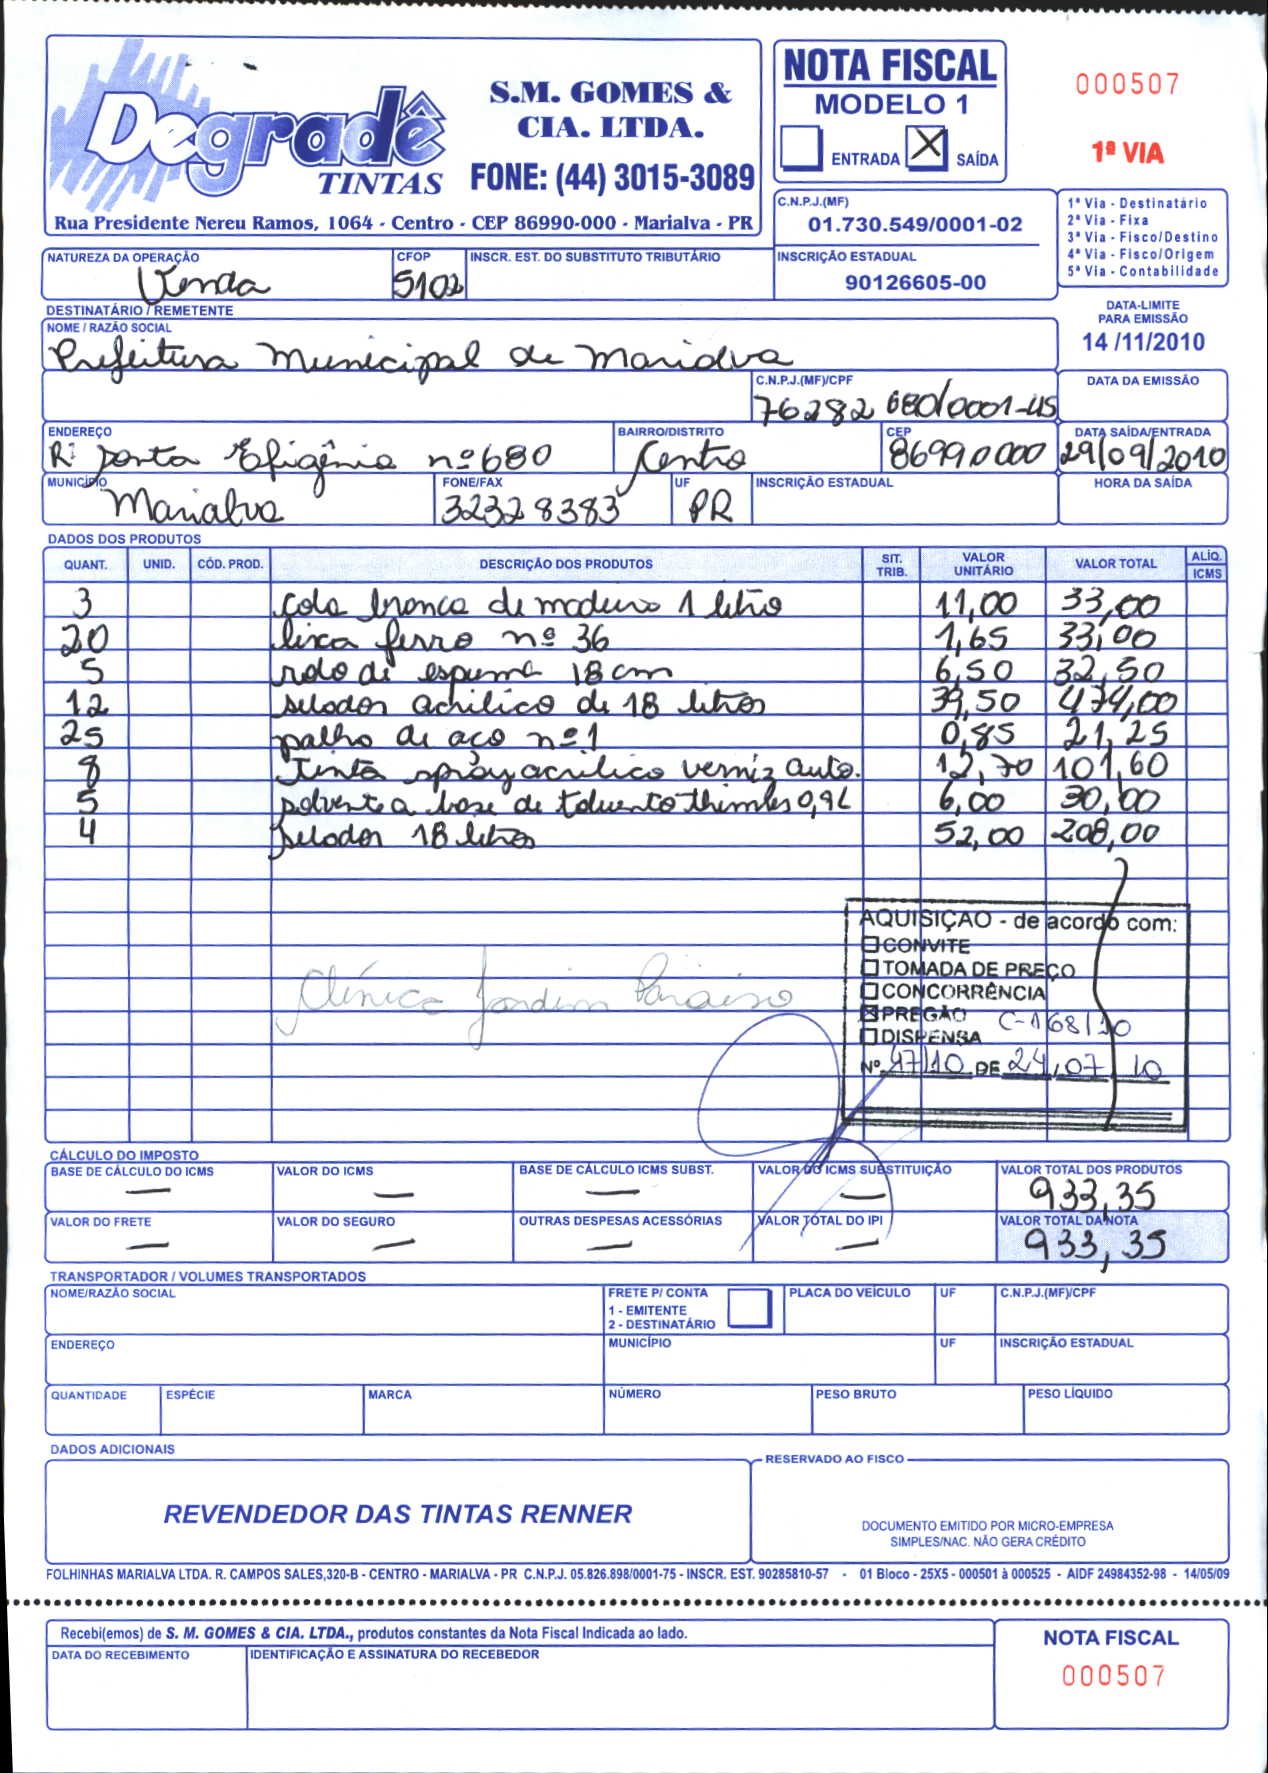 Degradê
TINTAS
S.M. GOMES &
CIA. LTDA.
FONE: (44) 3015-3089
Rua Presidente Nereu Ramos, 1064 - Centro - CEP 86990-000 - Marialva - PR
NOTA FISCAL
MODELO 1
ENTRADA X SAÍDA
000507
1ª VIA
C.N.P.J.(MF)
01.730.549/0001-02
INSCRIÇÃO ESTADUAL
90126605-00
1ª Via - Destinatário
2ª Via - Fixa
3ª Via - Fisco/Destino
4ª Via - Fisco/Origem
5ª Via - Contabilidade
NATUREZA DA OPERAÇÃO CFOP INSCR. EST. DO SUBSTITUTO TRIBUTÁRIO
Venda 5102
DATA-LIMITE
PARA EMISSÃO
14/11/2010
DESTINATÁRIO / REMETENTE
NOME / RAZÃO SOCIAL
Prefeitura Municipal de Marialva
C.N.P.J.(MF)/CPF DATA DA EMISSÃO
76282 680/0001-45
ENDEREÇO BAIRRO/DISTRITO CEP DATA SAÍDA/ENTRADA
R: Santa Efigênia nº 680 Centro 86990000 29/09/2010
MUNICÍPIO FONE/FAX UF INSCRIÇÃO ESTADUAL HORA DA SAÍDA
Marialva 32328383 PR
DADOS DOS PRODUTOS
QUANT. UNID. CÓD. PROD. DESCRIÇÃO DOS PRODUTOS SIT. TRIB. VALOR UNITÁRIO VALOR TOTAL ALÍQ. ICMS
3 cola branca de madeira 1 litro 11,00 33,00
20 lixa ferro nº 36 1,65 33,00
5 rolo de espuma 18 cm 6,50 32,50
12 selador acrilico de 18 litros 39,50 474,00
25 palha de aço nº 1 0,85 21,25
8 Tinta spray acrilico verniz auto. 12,70 101,60
5 solvente a base de tolueno thinner 0,9L 6,00 30,00
4 selador 18 litros 52,00 208,00
Clínica Jardim Paraiso
AQUISIÇÃO - de acordo com:
CONVITE
TOMADA DE PREÇO
CONCORRÊNCIA
X PREGÃO C-168/10
DISPENSA
Nº 47/10 DE 24,07,10
CÁLCULO DO IMPOSTO
BASE DE CÁLCULO DO ICMS VALOR DO ICMS BASE DE CÁLCULO ICMS SUBST. VALOR DO ICMS SUBSTITUIÇÃO VALOR TOTAL DOS PRODUTOS
— — — — 933,35
VALOR DO FRETE VALOR DO SEGURO OUTRAS DESPESAS ACESSÓRIAS VALOR TOTAL DO IPI VALOR TOTAL DA NOTA
— — — — 933,35
TRANSPORTADOR / VOLUMES TRANSPORTADOS
NOME/RAZÃO SOCIAL FRETE P/ CONTA PLACA DO VEÍCULO UF C.N.P.J.(MF)/CPF
1 - EMITENTE
2 - DESTINATÁRIO
ENDEREÇO MUNICÍPIO UF INSCRIÇÃO ESTADUAL
QUANTIDADE ESPÉCIE MARCA NÚMERO PESO BRUTO PESO LÍQUIDO
DADOS ADICIONAIS
RESERVADO AO FISCO
REVENDEDOR DAS TINTAS RENNER
DOCUMENTO EMITIDO POR MICRO-EMPRESA
SIMPLES/NAC. NÃO GERA CRÉDITO
FOLHINHAS MARIALVA LTDA. R. CAMPOS SALES,320-B - CENTRO - MARIALVA - PR C.N.P.J. 05.826.898/0001-75 - INSCR. EST. 90285810-57 - 01 Bloco - 25X5 - 000501 à 000525 - AIDF 24984352-98 - 14/05/09
Recebi(emos) de S. M. GOMES & CIA. LTDA., produtos constantes da Nota Fiscal Indicada ao lado.
DATA DO RECEBIMENTO IDENTIFICAÇÃO E ASSINATURA DO RECEBEDOR
NOTA FISCAL
000507